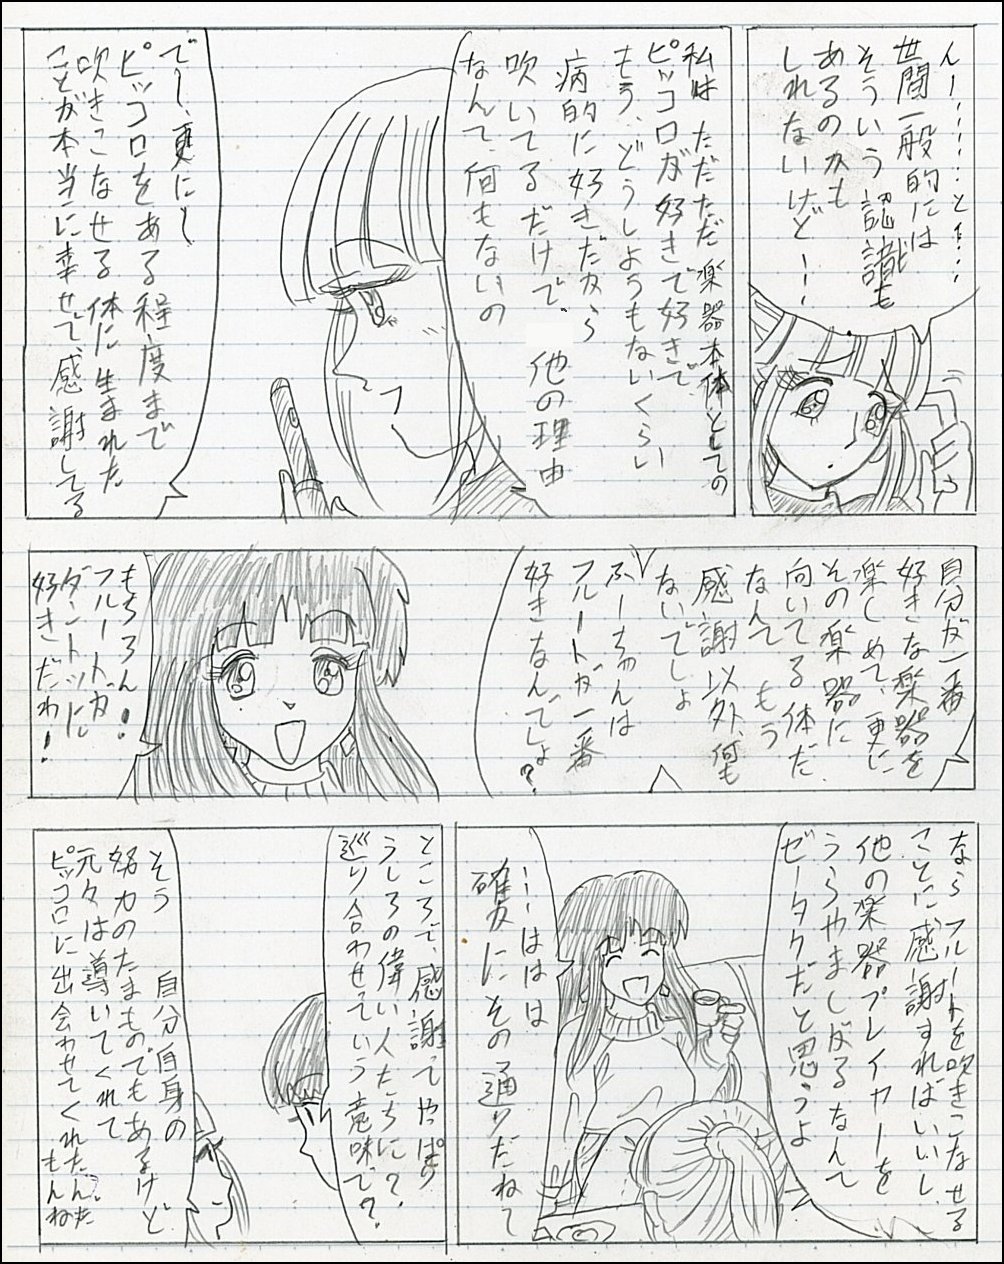 んー……とォ…
世間一般的には
そういう認識も
あるのかも
しれないけどーー
私は ただただ 楽器本体としての
ピッコロが好きで好きで
もう、どうしようもないくらい
病的に好きだから
吹いてるだけで 他の理由
なんて、何もないの
で〜、更にし
ピッコロをある程度まで
吹きこなせる体に生まれた
ことが本当に幸せで、感謝してる
自分が一番
好きな楽器を
楽しめて、更に
その楽器に
向いてる体だ
なんて もう
感謝以外、何も
ないでしょ
ふーちゃんは
フルートが一番
好きなんでしょ?
もちろん!
フルートが
ダントツに
好きだわ!
なら フルートを吹きこなせる
ことに感謝すればいいし
他の楽器プレイヤーを
うらやましがるなんて
ゼータクだと思うよ
ーーははは
確かにその通りだねて
ところで、感謝ってやっぱり
うしろの偉い人たちに?
巡り合わせていう意味で?
そう 自分自身の
努力のたまものでもあるけど
元々は導いてくれて
ピッコロに出会わせてくれたんだ
もんね